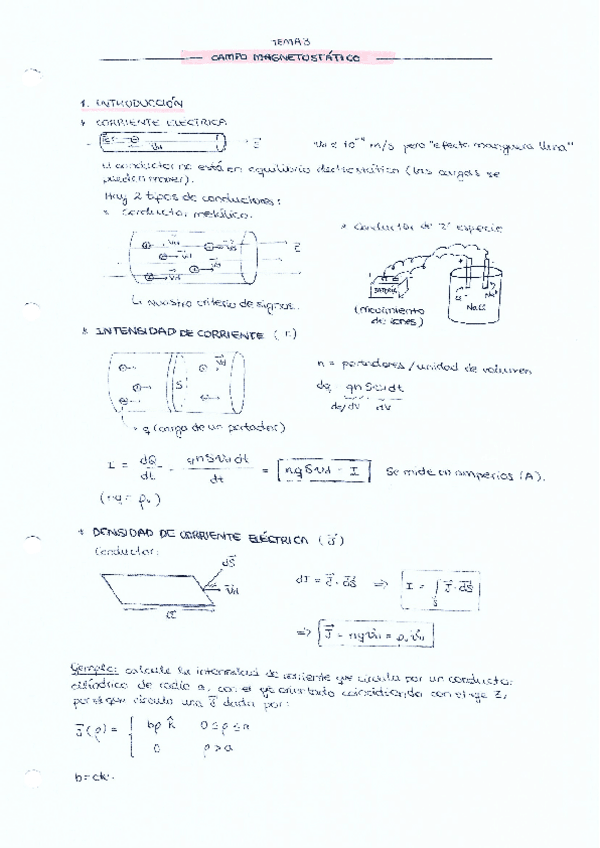 TEMA 3
CAMPO MAGNETOSTÁTICO
1. INTRODUCCIÓN
* CORRIENTE ELÉCTRICA
m/s pero "efecto manguera llena"
El conductor no está en equilibrio electrostático (las cargas se
pueden mover).
Hay 2 tipos de conductores:
* Conductor metálico.
* Conductor de 2ª especie
BATERÍA
NaCl
(movimiento
de iones)
↳ Nuestro criterio de signos.
* INTENSIDAD DE CORRIENTE (I)
n = portadores/unidad de volumen
dq = qnSvddt
dq/dV dV
q (carga de un portador)
I = dQ/dt = qnSvddt/dt = nqSvd = I Se mide en amperios (A).
(nq = ρv)
* DENSIDAD DE CORRIENTE ELÉCTRICA (J⃗)
Conductor:
dS⃗
v⃗d
dI = J⃗·dS⃗ => I = ∫S J⃗·dS⃗
=> J⃗ = nqv⃗d = ρvv⃗d
Ejemplo: calcule la intensidad de corriente que circula por un conductor
cilíndrico de radio a, con el eje orientado coincidiendo con el eje Z,
por el que circula una J⃗ dada por:
J⃗(ρ) = { bρ k̂ 0≤ρ≤a
0 ρ>a
b=cte.